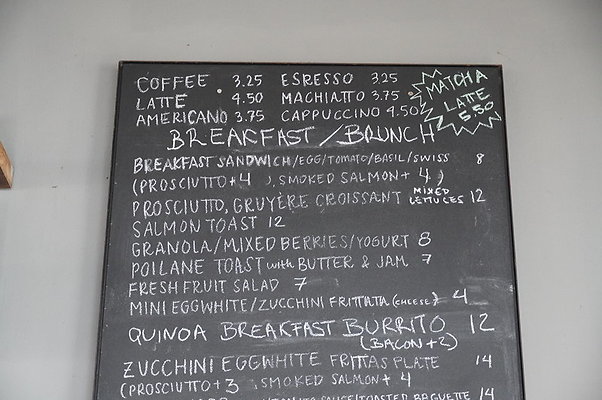 COFFEE 3.25 ESRESSO 3.25
LATTE 4.50 MACHIATTO 3.75
AMERICANO 3.75 CAPPUCCINO 4.50
MATCHA
LATTE
5.50
BREAKFAST/BRUNCH
BREAKFAST SANDWICH/EGG/TOMATO/BASIL/SWISS 8
(PROSCIUTTO+4 ), SMOKED SALMON+ 4)
PROSCIUTTO, GRUYÈRE CROISSANT MIXED LETTUCES 12
SALMON TOAST 12
GRANOLA/MIXED BERRIES/YOGURT 8
POILANE TOAST with BUTTER & JAM 7
FRESH FRUIT SALAD 7
MINI EGGWHITE/ZUCCHINI FRITTATA (CHEESE) 4
QUINOA BREAKFAST BURRITO 12
(BACON+2)
ZUCCHINI EGGWHITE FRITTAS PLATE 14
(PROSCIUTTO+3 , SMOKED SALMON + 4
TOMATO SAUCE/TOASTED BAGUETTE 14